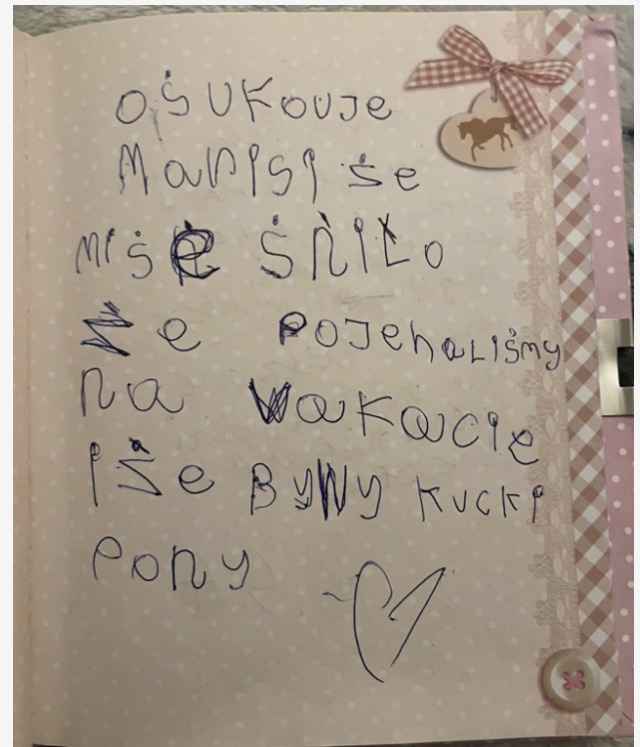 OṠUKOUJE
MaNISI ṡe
MIṠe ṠṄIŁO
Że POJEhaLIṡmy
Na VaKaCIe
IŻe ByNy KUCKI
PONy